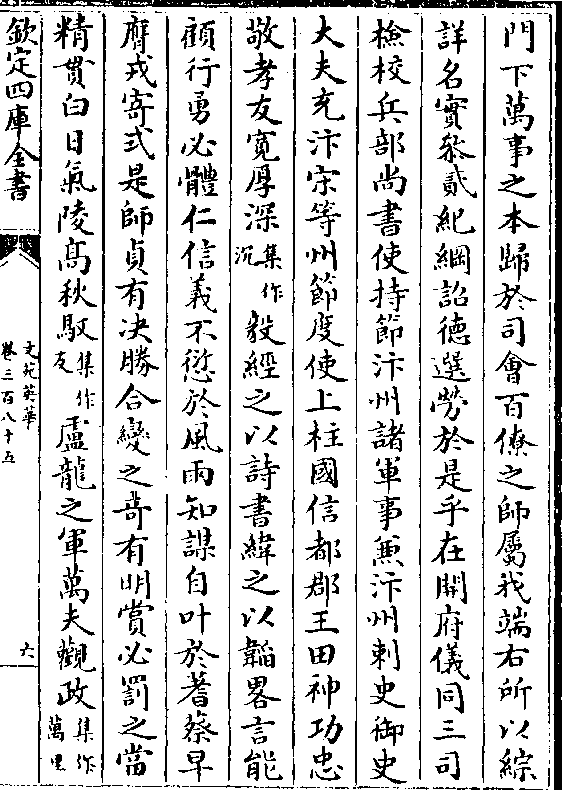 門下萬事之本歸於司會百僚之師屬我端右所以綜
詳名實叅貳紀綱詔德選勞於是乎在開府儀同三司
檢校兵部尚書使持節汴州諸軍事兼汴州刺史御史
大夫充汴宋等州節度使上柱國信都郡王田神功忠
敬孝友寛厚深集作沉毅經之以詩書緯之以韜畧言能
顧行勇必體仁信義不愆於風雨知謀自叶於蓍蔡早
膺戎寄式是師貞有决勝合變之奇有明賞必罰之當
精貫白日氣陵高秋馭集作友盧龍之軍萬夫觀政集作萬里
欽定四庫全書
文苑英華
卷三百八十五
六